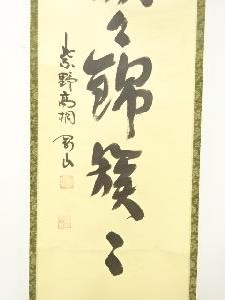 々錦簇々
紫野高桐 剛山